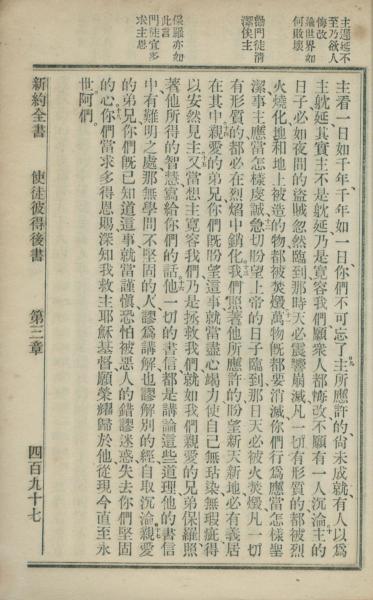 主遲延不
至乃欲人
悔改
論世界如
何敗壞
勸門徒清
潔俟主
保羅亦如
此言
門徒宜多
求主恩
主看一日如千年千年如一日你們不可忘了主所應許的尙未成就有人以爲
主躭延其實主不是躭延乃是寬容我們願衆人都悔改不願有一人沉淪主的
日子必如夜間的盜賊忽然臨到那時天必震響崩滅凡一切有形質的都被烈
火燒化地和地上被造的物都被焚燬萬物旣都要消滅你們行爲應當怎樣聖
潔事主應當怎樣虔誠急切盼望上帝的日子臨到那日天必被火焚燬凡一切
有形質的都必在烈焰中銷化我們照著他所應許的盼望新天新地必有義居
在其中親愛的弟兄你們旣盼望這事就當盡心竭力使自己無玷染無瑕疵得
以安然見主又當想主寬容我們乃是拯救我們就如我們親愛的兄弟保羅照
著他所得的智慧寫給你們的話他一切的書信都是講論這些道理他的書信
中有難明之處那無學問不堅固的人謬爲講解也謬解別的經自取沉淪親愛
的弟兄你們旣已知道這事就當謹愼恐怕被惡人的錯謬迷惑失去你們堅固
的心你們當求多得恩賜深知我救主耶穌基督願榮耀歸於他從現今直至永
世阿們
新約全書 使徒彼得後書 第三章 四百九十七